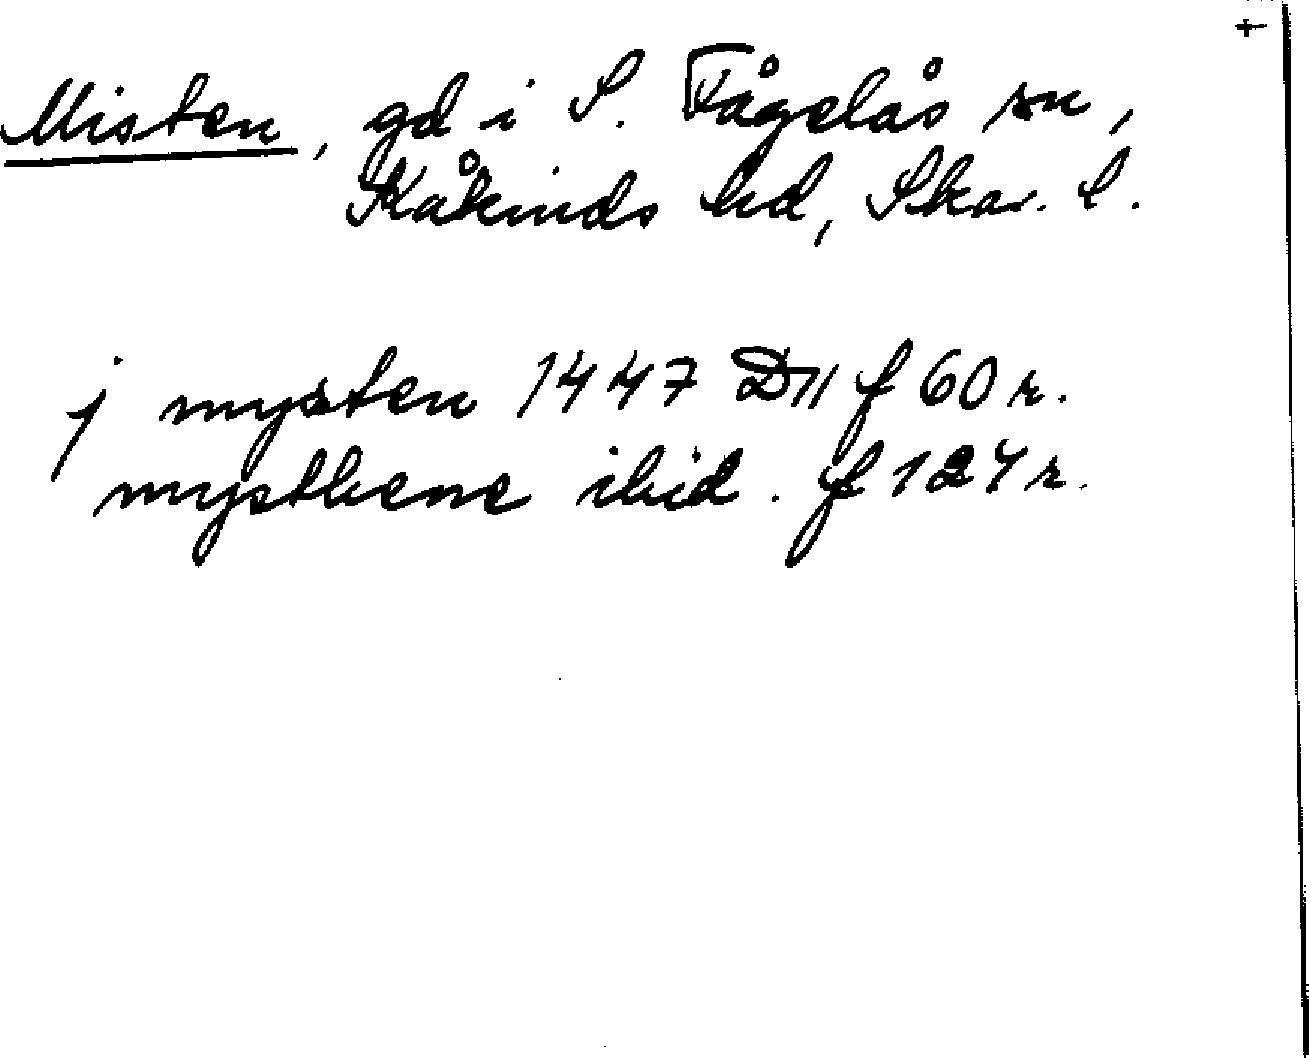 +
Misten, gd i S. Fågelås sn,
Kåkinds hd, Skar. l.
j mysten 1447 D11 f 60 r.
mysthene ibid. f 124 r.